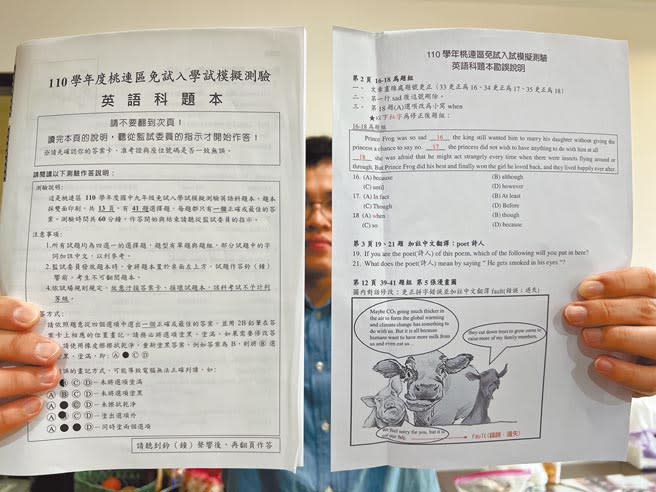 110 學年度桃連區免試入學試模擬測驗
英 語 科 題 本
請不要翻到次頁！
讀完本頁的說明，聽從監試委員的指示才開始作答！
※請先確認你的答案卡、准考證與座位號碼是否一致無誤。
請閱讀以下測驗作答說明：
測驗說明：
這是桃連區 110 學年度國中九年級免試入學模擬測驗英語科題本，題本
採雙面印刷，共 13 頁，有 41 題選擇題，每題都只有一個正確或最佳的答
案。測驗時間共 60 分鐘，作答開始與結束請聽從監試委員的指示。
注意事項：
1.所有試題均為四選一的選擇題，題型有單題與題組，部分試題中的字
詞加註中文，以利參考。
2.監試委員發放題本時，會將題本置於桌面左上方，試題作答鈴（鐘）
響前，考生不可翻閱題本。
4.依試場規則規定，故意汙損答案卡、損壞試題本，該科考試不予計列
等級。
作答方式：
請依照題意從四個選項中選出一個正確或最佳的答案，並用 2B 鉛筆在答
案卡上相應的位置畫記，請務必將選項塗黑、塗滿。如果需要修改答
案，請使用橡皮擦擦拭乾淨，重新塗黑答案。例如答案為 B，則將 Ⓑ 選
項塗黑、塗滿，即：Ⓐ ● Ⓒ Ⓓ
錯誤的畫記方式，可能導致電腦無法正確判讀。如：
—未將選項塗滿
—未將選項塗黑
—未擦拭乾淨
—塗出選項外
—同時塗兩個選項
請聽到鈴（鐘）聲響後，再翻頁作答
110 學年桃連區免試入試模擬測驗
英語科題本勘誤說明
第 2 頁 16-18 為題組
一、 文章畫線處題號更正（33 更正為 16、34 更正為 17、35 更正為 18）
二、 第一行 sad 後逗號刪除。
三、 第 18 題(A)選項改為小寫 when
★以下紅字為修正後題組：
16-18 為題組
Prince Frog was so sad __16__ the king still wanted him to marry his daughter without giving the
princess a chance to say no. __17__ the princess did not wish to have anything to do with him at all
__18__ she was afraid that he might act strangely every time when there were insects flying around or
through. But Prince Frog did his best and finally won the girl he loved back, and they lived happily ever after.
16. (A) because (B) although
(C) until (D) however
17. (A) In fact (B) At least
(C) Though (D) Before
18 (A) when (B) though
(C) so (D) because
第 3 頁 19、21 題 加註中文翻譯：poet 詩人
19. If you are the poet(詩人) of this poem, which of the following will you put in here?
21. What does the poet(詩人) mean by saying “ He gets smoked in his eyes.”?
第 12 頁 39-41 題組 第 5 張漫畫圖
圖內對話修改：更正拼字錯誤並加註中文翻譯 fault(錯誤；過失)
Maybe CO₂ going much thicker in
the air to form the global warming
and climate change has something to
do with us. But it is all because
humans want to have more milk from
us and even eat us .
They cut down trees to grow corns to
raise more of my family members.
but it is
not our falt.
fault(錯誤；過失)